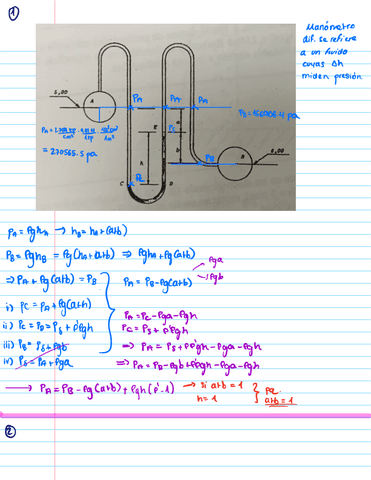 ①
Manómetro
dif. se refiere
a un fluido
cuyas Δh
miden presión.
5,00
A
PA
PA
PA
PB = 156906.4 pa
= 270565.5 pa
E
PE
a
b
h
PB
B
6,00
C
PC
D
PA = ρghA → hB = hA + (a+b)
PB = ρghB = ρg(hA + a+b) ⇒ ρghA + ρg(a+b)
⇒ PA + ρg(a+b) = PB
PA = PB - ρg(a+b)
ρga
ρgb
i) PC = PA + ρg(a+h)
ii) PC = PD = P5 + ρ'gh
iii) PB = P5 + ρgb
iv) P5 = PA + ρga
PA = PC - ρga - ρgh
PC = P5 + ρ'gh
⇒ PA = P5 + ρ'gh - ρga - ρgh
⇒ PA = PB - ρgb + ρ'gh - ρga - ρgh
→ PA = PB - ρg(a+b) + ρgh(ρ' - 1)
→ si a+b = 1
h = 1
a+b = 1
②